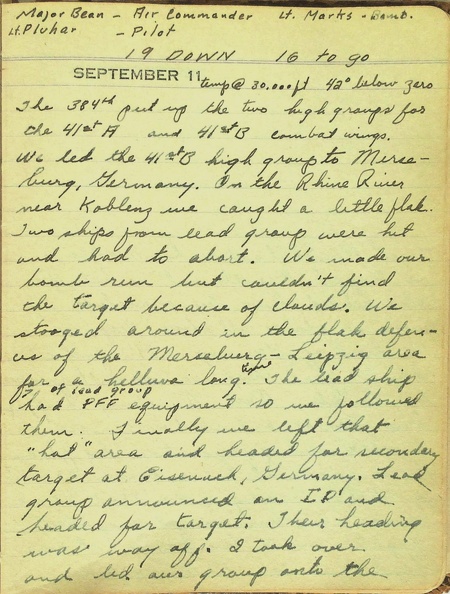 Major Bean - Air Commander Lt. Marks - Bomb.
Lt. Pluhar - Pilot
19 DOWN 16 to go
SEPTEMBER 11 temp @ 30,000 ft 42° below zero
The 384th put up the two high groups for
the 41st A and 41st B combat wings.
We led the 41st B high group to Merse-
burg, Germany. On the Rhine River
near Koblenz we caught a little flak.
Two ships from lead group were hit
and had to abort. We made our
bomb run but couldn't find
the target because of clouds. We
stooged around in the flak defen-
ces of the Merseburg-Leipzig area
for a helluva long time. The lead ship
of lead group
had PFF equipment so we followed
them. Finally we left that
"hot" area and headed for secondary
target at Eisenach, Germany. Lead
group announced an IP and
headed for target. Their heading
was way off. I took over
and led our group onto the